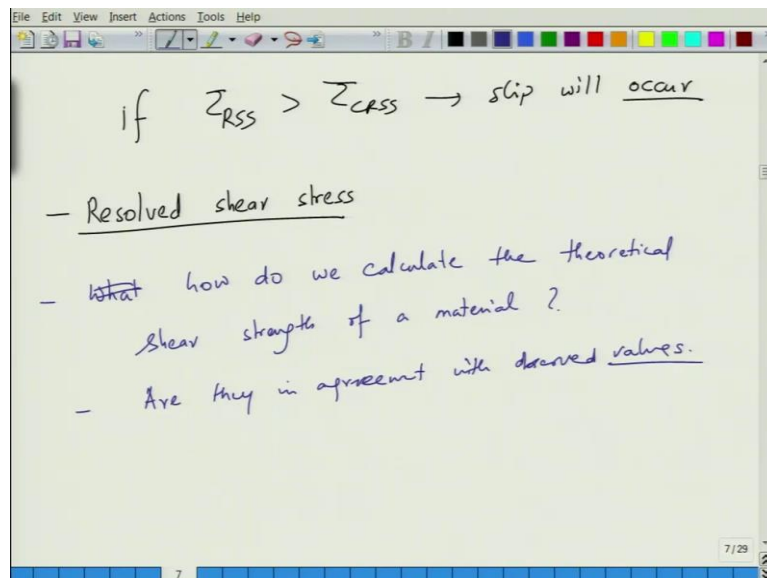 File Edit View Insert Actions Tools Help
B I
if τRSS > τCRSS → slip will occur
- Resolved shear stress
- What how do we calculate the theoretical
shear strength of a material ?
- Are they in agreement with values.
7/29
7